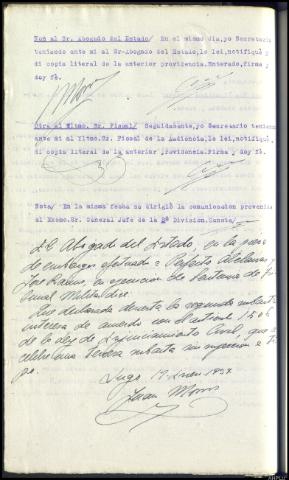 Noti al Sr. Abogado del Estado/ En el mismo dia, yo Secretario
teniendo ante mi al Sr-Abogado del Estado, le lei, notifiqué y
di copia literal de la anterior providencia. Enterado, firma y
doy fé.
Otra al Yltmo. Sr. Fiscal/ Seguidamente, yo Secretario teniendo
ante mi al Yltmo. Sr. Fiscal de la Audiencia, le lei, notifiqué,
di copia literal de la anterior providencia. Firma y doy fé.
Nota/ En la misma fecha se dirigió la comunicacion prevenida
al Excmo. Sr. General Jefe de la División. Consta/
El Abogado del Estado, en la pieza
de embargo efectuado a
en ejecución de Sentencia de
Militar dice
Que declarada desierta la segunda subasta
interesa de acuerdo con el artículo 1506
de la ley de Enjuiciamiento Civil, que se
celebre una tercera subasta sin sujeción a
po.
Lugo 19 Enero 1938
Juan